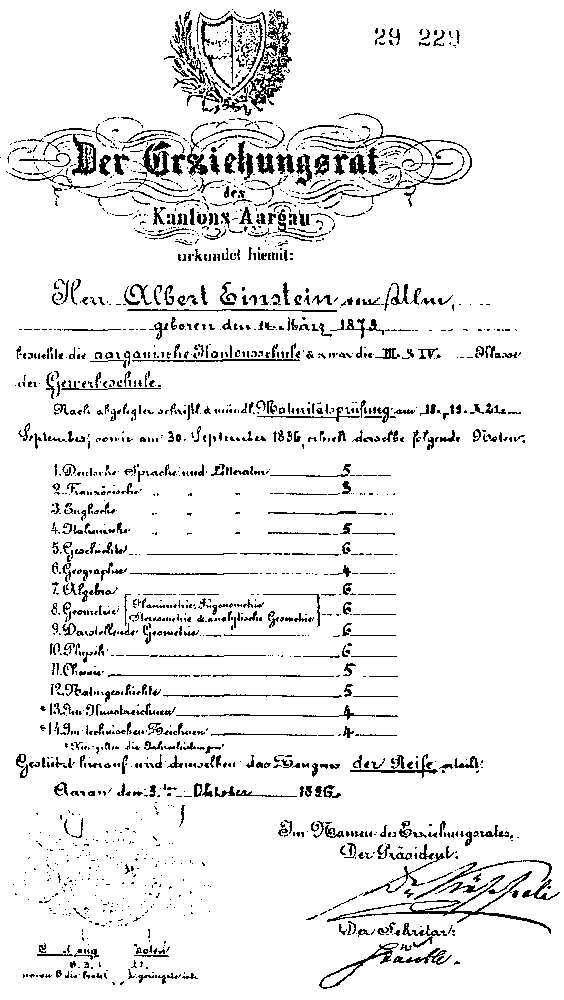 29 229
Der Erziehungsrat
des
Kantons Aargau
urkundet hiemit:
Herr Albert Einstein von Ulm,
geboren den 14. März 1879,
besuchte die aargauische Kantonsschule & zwar die III. & IV. Klasse
der Gewerbeschule.
Nach abgelegter schriftl. & mündl. Maturitätsprüfung am 18., 19. & 21.
September, sowie am 30. September 1896, erhielt derselbe folgende Noten:
1. Deutsche Sprache und Litteratur 5
2. Französische " " " 3
3. Englische " " " —
4. Italienische " " " 5
5. Geschichte 6
6. Geographie 4
7. Algebra 6
8. Geometrie [Planimetrie, Trigonometrie 6
Stereometrie & analytische Geometrie]
9. Darstellende Geometrie 6
10. Physik 6
11. Chemie 5
12. Naturgeschichte 5
*13. Im Kunstzeichnen 4
*14. Im technischen Zeichnen 4
* Hier gelten die Jahresleistungen
Gestützt hierauf wird demselben das Zeugnis der Reife erteilt.
Aarau den 3ten Oktober 1896.
Im Namen des Erziehungsrates,
Der Präsident:
Der Sekretär: